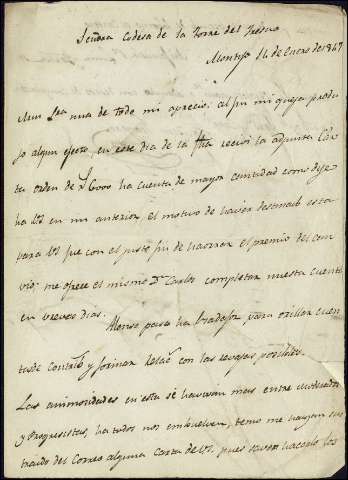 Señora Condesa de la Torre del Fresno
Montijo 14 de Enero de 1847
Muy Sra mia de todo mi aprecio. al fin mi queja produ
jo algun efecto, en este dia de la fha recivi la adjunta
ta orden de 5.000 ha cuenta de mayor cantidad como dije
ha Vd en mi anterior, el motivo de haver destinado esta
para Vd fue con el justo fin de haorrar el premio del
vio; me ofrece el mismo Dn Carlos completar nuestra cuenta
en breves dias.
Alonso pasa ha Badajoz para orillar cuen
tas de y formar con las revajas posibles.
Las animosidades en esta se havivan mas entre moderados
y Progresistas, ha todos nos embuelven, temo me hayan sus
traido del Correo alguna Carta de Vd, pues saven hacerlo los